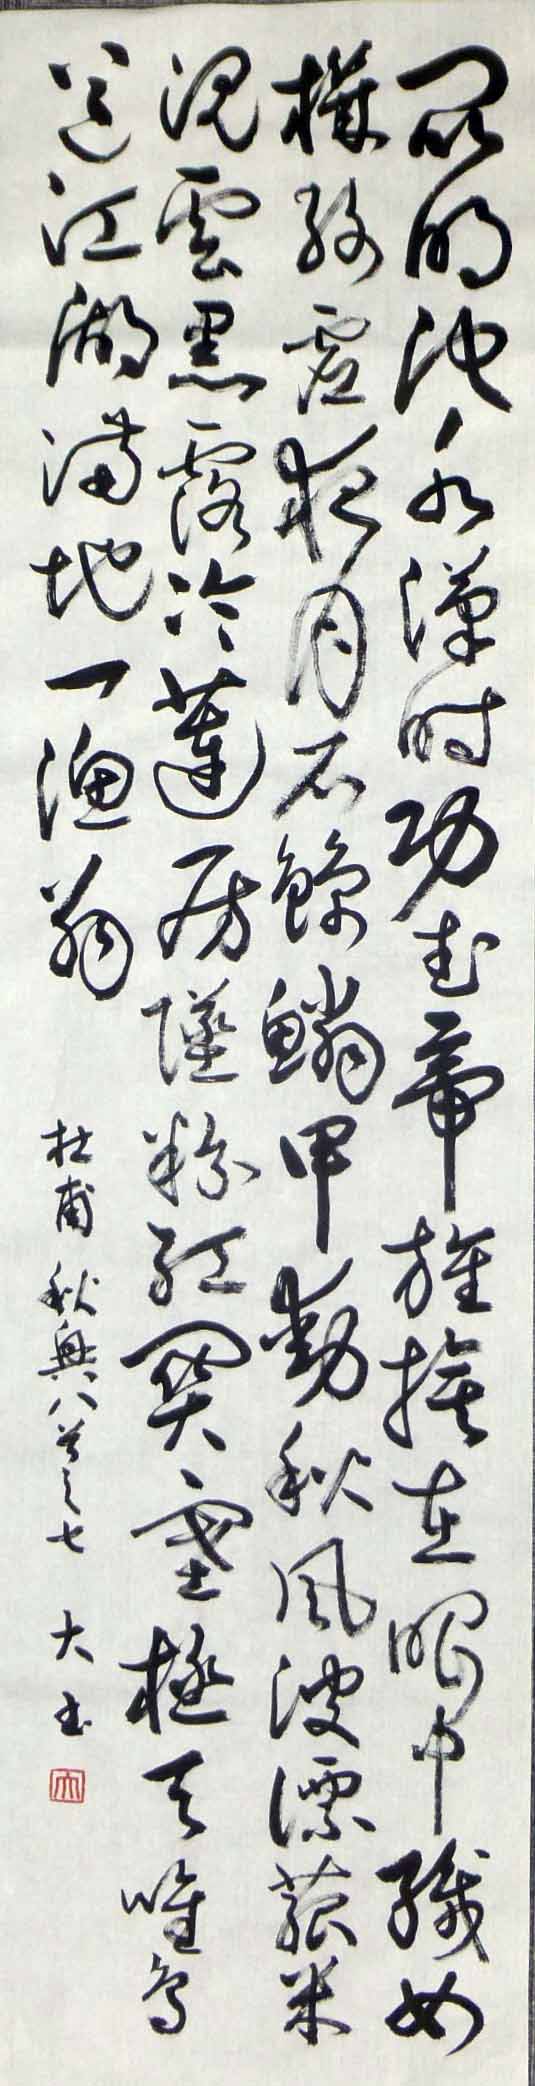 昆明池水漢時功武帝旌旗在眼中織女
機絲虛夜月石鯨鱗甲動秋風波漂菰米
沉雲黑露冷蓮房墜粉紅關塞極天唯鳥
道江湖滿地一漁翁
杜甫秋興八首之七 大書
大